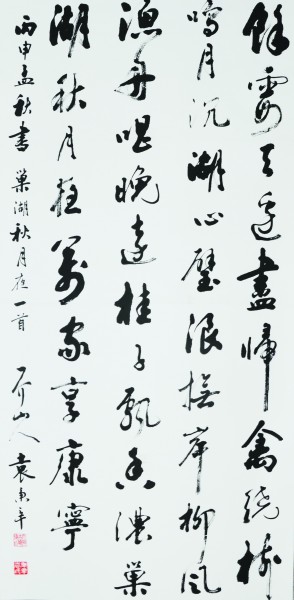 餘霞天邊盡歸禽繞樹
鳴月沉湖心璧浪撫岸柳風
漁舟唱晚遠桂子飄香濃巢
湖秋月萬家享康寧
丙申孟秋書 巢湖秋月夜一首 介山人 袁